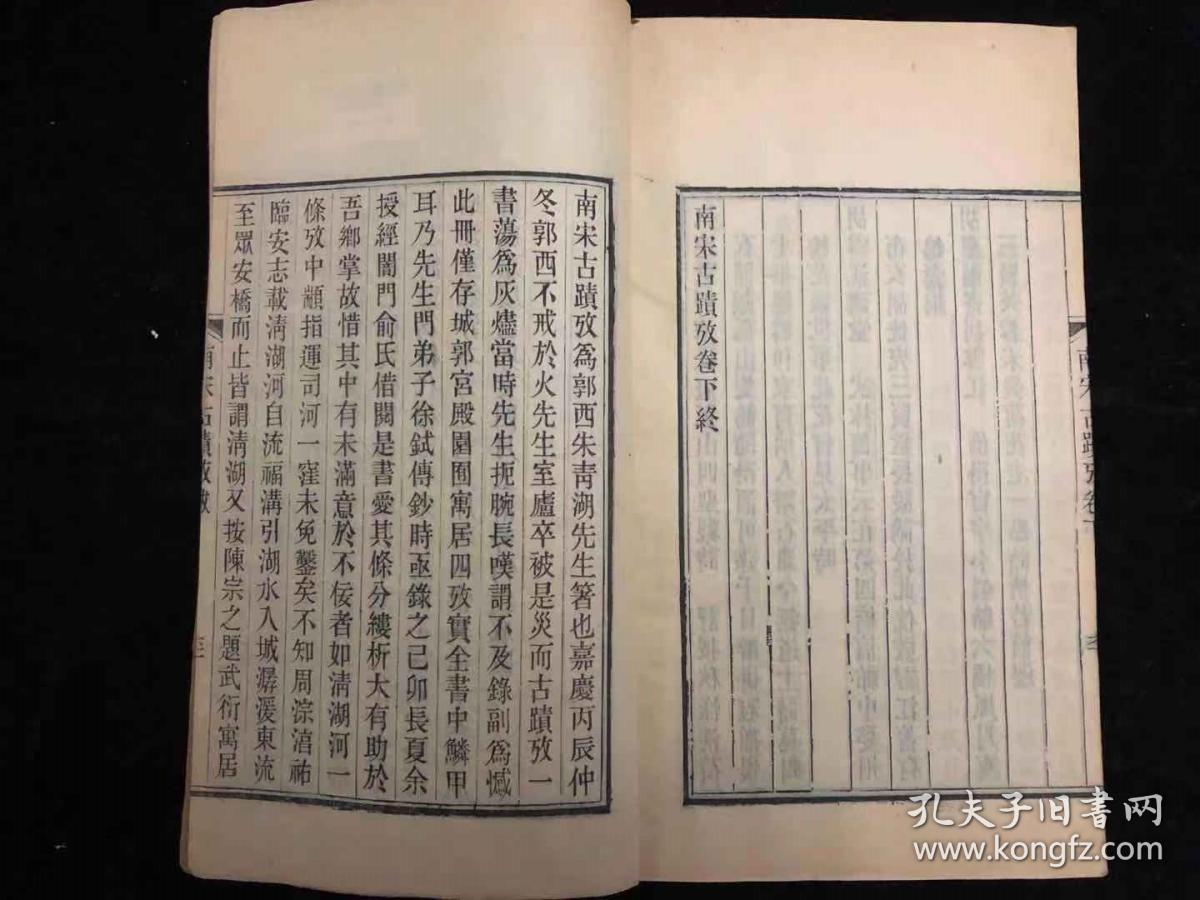 南宋古蹟攷卷下終
南宋古蹟攷卷下
南宋古蹟攷爲郭西朱靑湖先生箸也嘉慶丙辰仲
冬郭西不戒於火先生室廬卒被是災而古蹟攷一
書蕩爲灰燼當時先生扼腕長嘆謂不及錄副爲憾
此冊僅存城郭宮殿園囿寓居四攷實全書中鱗甲
耳乃先生門弟子徐鉽傳鈔時亟錄之己卯長夏余
授經閶門俞氏借閱是書愛其條分縷析大有助於
吾鄉掌故惜其中有未滿意於不佞者如淸湖河一
條攷中顓指運司河一窪未免鑿矣不知周淙淳祐
臨安志載淸湖河自流福溝引湖水入城潺湲東流
至眾安橋而止皆謂淸湖又按陳宗之題武衍寓居
南宋古蹟攷
孔夫子旧书网
www.kongfz.com